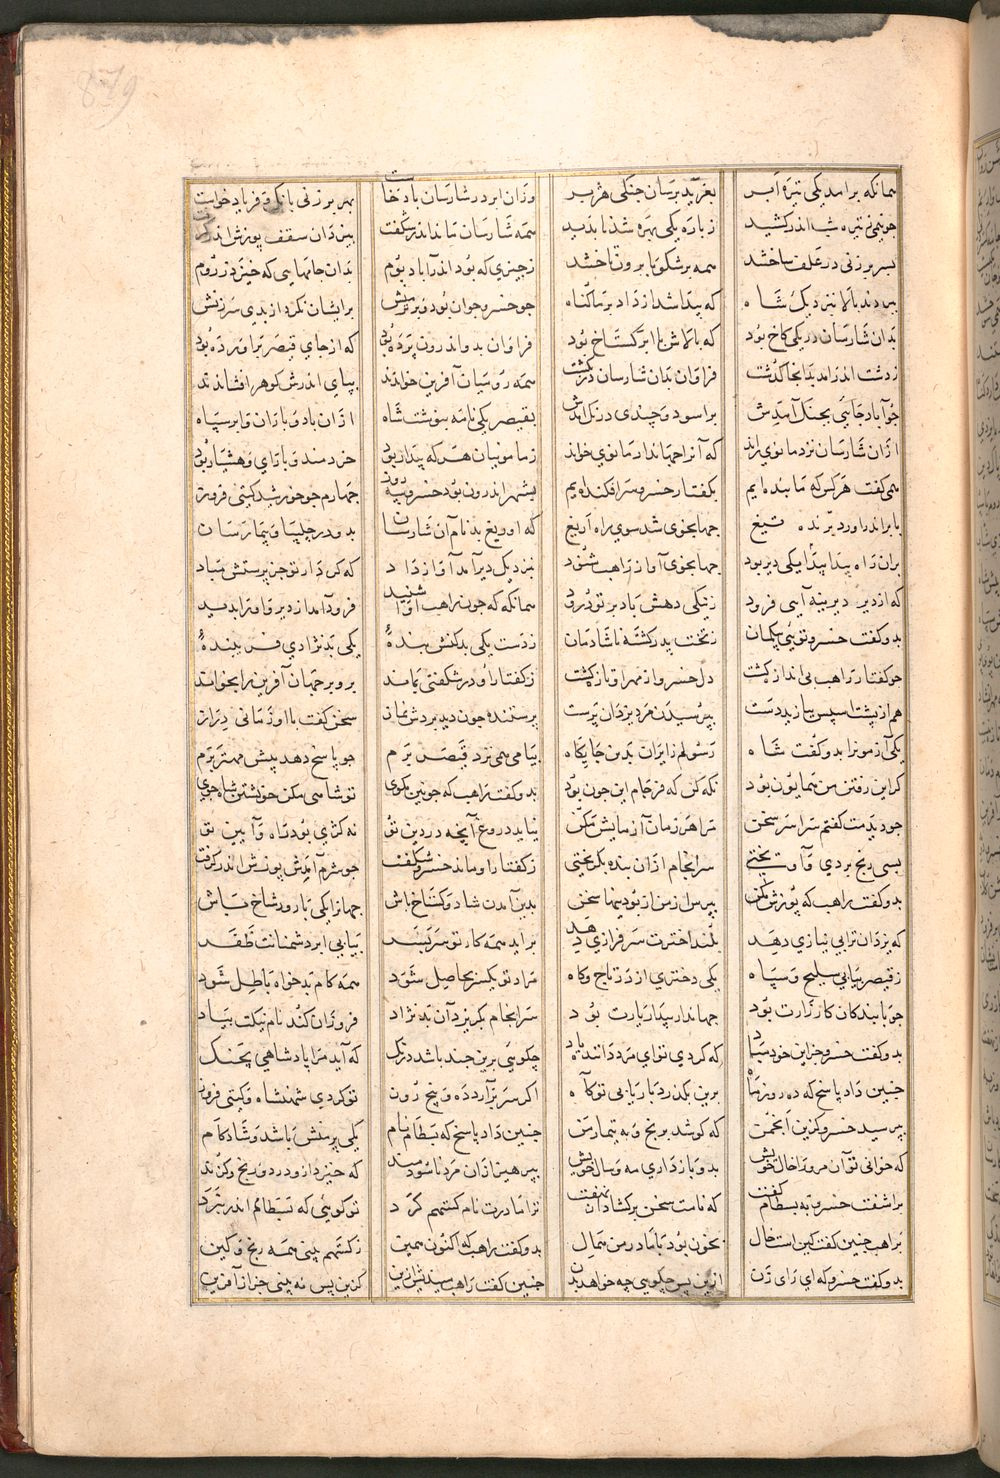 879
همانکه برامد یکی تیره ابر بغرید برسان جنکی هژبر وزان ابر در شارسان باد خاست بهر برزنی بانک و فریاد خواست
جو نیمی ز تیره شب اندر کشید ز باره یکی بهره شد ناپدید همه شارسان ماند اندر شکفت بیزدان سقف پوزش اندر کرفت
بهر برزنی در علف ساختند همه بر شکوبا برون تاختند ز جیزی که بود اندر آباد بوم بدان جامهایی که خیزد ز روم
ببردند بالا بنزدیک شاه که پیدا شد از داد بر ما کناه جو خسرو جوان بود و برتر منش برایشان نکرد از بدی سرزنش
بدان شارسان در یکی کاخ بود که بالاش با ابر کستاخ بود فراوان بدو اندرون برده بود که از جای قیصر براورده بود
ز دشت اندر امد بدانجا کذشت فراوان بدان شارسان در بکشت همه رومیان آفرین خواندند بپای اندرش کوهر افشاندند
جو آباد جایی بجنک آمدش براسود و چندی درنک امدش بقیصر یکی نامه بنوشت شاه ازان باد و باران و ابر سیاه
ازان شارسان نزد مانوی راند که آنرا جهاندار مانوی خواند ز مانویان هر که بیدار بود خردمند و بارای و هشیار بود
همی کفت هر کس که ما بنده ایم بکفتار خسرو سرافکنده ایم بشهر اندرون بود خسرو سه روز جهارم جو خورشید کیتی فروز
بابر اندر اورد برنده تیغ جهانجوی شد سوی راه اریغ که اوریغ بد نام آن شارسان بدو در جلیپا و بیمارسان
بران راه پیدا یکی دیر بود جهانجوی آواز راهب شنود بنزدیک دیر آمد آواز داد که کردار تو جز پرستش مباد
که از دیر دیرینه آیی فرود ز نیکی دهش باد بر تو درود همانکه که جون راهب آوا شنید فرود آمد از دیر و او را بدید
بدو کفت خسرو تویی بیکمان ز تخت پدر کشته ناشادمان ز دست یکی بدکنش بنده یکی بدنژادی فریبنده
جو کفتار راهب بی اندازه کشت دل خسرو از مهر او تازه کشت ز کفتار او در شکفتی بماند برو بر جهان آفرین را بخواند
هم از پشت اسپس بیازید دست بپرسیدن مرد یزدان پرست پرستنده جون دید بردش نماز سخن کفت با او زمانی دراز
یکی آزمونرا بدو کفت شاه رسولم ز ایران بدین جایکاه پیامی همی نزد قیصر برم جو پاسخ دهد پیش مهتر برم
کر این رفتن من همایون بود نکه کن که فرجام این جون بود بدو کفت راهب که جونین مکوی تو شاهی مکن خویشتن شاه جوی
جو دیدمت کفتم سراسر سخن مرا هر زمان آزمایش مکن نیاید دروغ آیجه در دین تو نه کژی بود راه و آیین تو
بسی رنج بردی و آویختی سرانجام ازان بنده بکریختی ز کفتار او ماند خسرو شکفت جو شرم آمدش پوزش اندر کرفت
بدو کفت راهب که پوزش مکن بپرس از من از بودنیها سخن بدین آمدن شاد و کستاخ باش جهانرا یکی بارور شاخ باش
که یزدان ترا بی نیازی دهد بلند اخترت سرفرازی دهد براید همه کار تو سربسر بیابی ابر دشمنانت ظفر
ز قیصر بیابی سلیح و سپاه یکی دختری از در تاج و کاه مراد تو یکسر بحاصل شود همه کام بدخواه باطل شود
جو با بندکان کارزارت بود جهاندار بیدار یارت بود سرانجام بکریزد آن بدنژاد فروزان کند نام نیکت بیاد
بدو کفت خسرو جز این خود مباد که کردی تو ای مرد داننده یاد چکویی برین چند باشد درنک که آید مرا پادشاهی بچنک
جنین داد پاسخ که ده روز و ماه برین بکذرد باز یابی تو کاه اکر سر برآرد ده و پنج روز تو کردی شهنشاه و کیتی فروز
بپرسید خسرو کزین انجمن که کوشد برنج و به تیمار من جنین داد پاسخ که بسطام نام یکی برمنش باشد و شادکام
که خوانی تو آن مرد را خال خویش بدو باز داری مه و سال خویش بپرهیز ازان مرد ناسودمند که خیزد ازو درد و رنج و کزند
براشفت خسرو به بسطام کفت که نامت سخن برکشاد از نهفت ترا مادرت نام کستهم کرد تو کویی که بسطامم اندر نبرد
براهب جنین کفت کین است خال بخون بود با مادر من همال بدو کفت راهب که اکنون همین ز کستهم بینی همه رنج و کین
بدو کفت خسرو که ای رای زن ازین پس چکویی چه خواهد بدن جنین کفت راهب میندیش ازین کزین پس نه بینی جز از آفرین